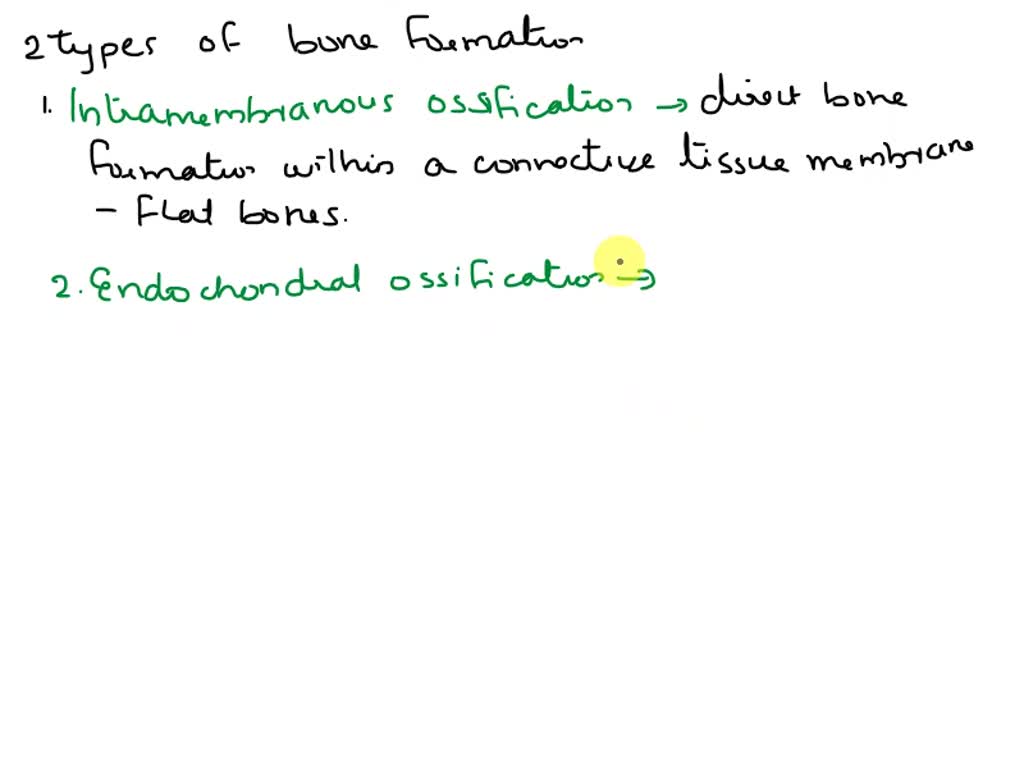 2 types of bone formation
1. Intramembranous ossification → direct bone
formation within a connective tissue membrane
- Flat bones.
2. Endochondral ossification →